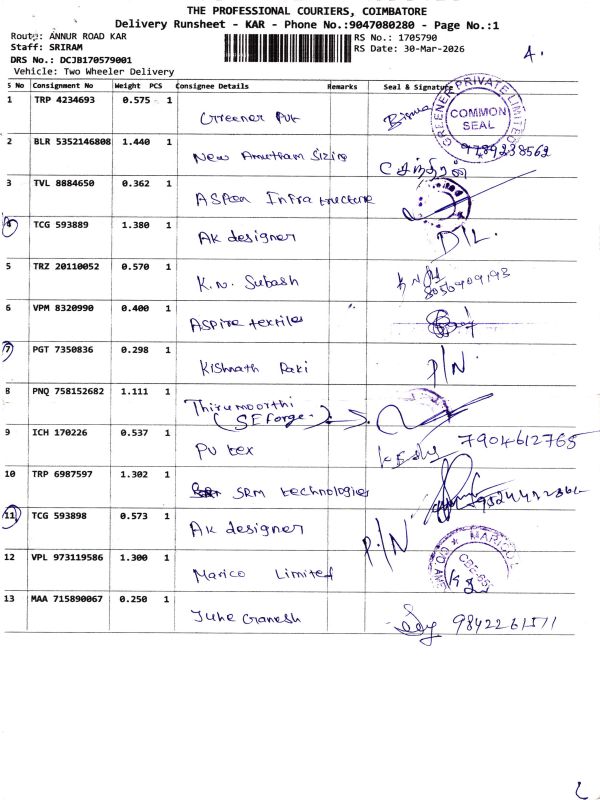 THE PROFESSIONAL COURIERS, COIMBATORE
Delivery Runsheet - KAR - Phone No.:9047080280 - Page No.:1
Route: ANNUR ROAD KAR RS No.: 1705790
Staff: SRIRAM RS Date: 30-Mar-2026
4.
DRS No.: DCJB170579001
Vehicle: Two Wheeler Delivery
S No Consignment No Weight PCS Consignee Details Remarks Seal & Signature
1 TRP 4234693 0.575 1 Greener Pvt
GREENER PRIVATE LIMITED
COMMON
SEAL
2 BLR 5352146808 1.440 1 New Amutham Sizing 9789238562
3 TVL 8884650 0.362 1 ASPen Infra tructure
4 TCG 593889 1.380 1 AK designer D/L.
5 TRZ 20110052 0.570 1 K.N. Subash 8056909193
6 VPM 8320990 0.400 1 ASPire textiles
7 PGT 7350836 0.298 1 Kishnath Raki P/N.
8 PNQ 758152682 1.111 1 Thirumoorthi
(SEforge.)
9 ICH 170226 0.537 1 PV tex 7904612765
10 TRP 6987597 1.302 1 SRM technologies
11 TCG 593898 0.573 1 AK designer P/N.
12 VPL 973119586 1.300 1 Marico Limited
MARICO
CBE-65
13 MAA 715890067 0.250 1 Juhe Ganesh 9842261511